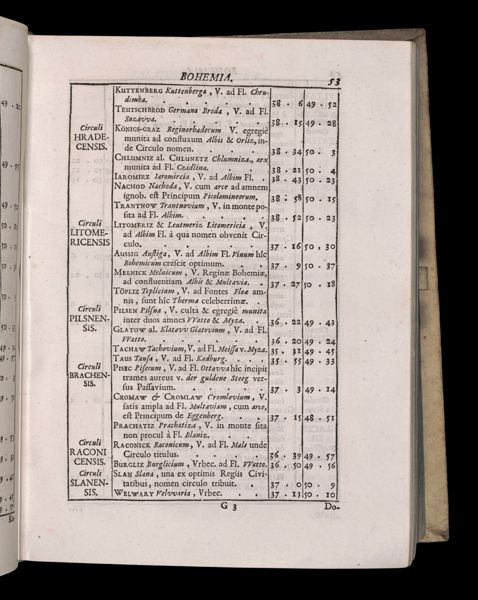 BOHEMIA. 53
KUTTENBERG Kuttenberga, V. ad Fl. Chru-
dimka. 38 . 6 49 . 52
TEUTSCHBROD Germana Broda, V. ad Fl.
Sazavva. 38 . 15 49 . 28
Circuli
HRADE-
CENSIS.
KÖNIGS-GRAZ Reginohradecum V. egregiè
munita ad confluxum Albis & Orlitz, in-
de Circulo nomen. 38 . 34 50 . 3
CHLUMNIZ al. CHLUNETZ Chlumniza, arx
munita ad Fl. Czidlina. 38 . 21 50 . 4
IAROMIRZ Iaromircia, V. ad Albim Fl. 38 . 43 50 . 23
NACHOD Nachoda, V. cum arce ad amnem
ignob. est Principum Picolomineorum. 38 . 58 50 . 15
TRANTNOW Trantnovium, V. in monte po-
sita ad Fl. Albim. 38 . 52 50 . 23
Circuli
LITOME-
RICENSIS
LITOMERIZ & Leutmeriz Litomericia, V.
ad Albim Fl. à qua nomen obvenit Cir-
culo. 37 . 16 50 . 30
AUSSIG Austiga, V. ad Albim Fl. Vinum hîc
Bohemicum crescit optimum. 37 . 9 50 . 37
MELNICK Melnicum, V. Reginæ Bohemiæ,
ad confluentiam Albis & Multaviæ. 37 . 27 50 . 18
TÖPLIZ Teplicium, V. ad Fontes Floæ am-
nis, sunt hîc Thermæ celeberrimæ.
Circuli
PILSNEN-
SIS.
PILSEN Pilsna, V. culta & egregiè munita
inter duos amnes VVatto & Myza. 36 . 22 49 . 43
GLATOW al. Klatavv Glatovium, V. ad Fl.
VVatto. 36 . 20 49 . 24
TACHAW Tachovium, V. ad Fl. Meissa v. Myza. 35 . 31 49 . 45
TAUS Tausa, V. ad Fl. Kadburg. 35 . 55 49 . 33
Circuli
BRACHEN-
SIS.
PISEC Pisecum, V. ad Fl. Ottavva hic incipit
trames aureus v. der guldene Steeg ver-
sus Passavium. 37 . 3 49 . 14
CROMAW & CROMLAW Cromlovium, V.
satis ampla ad Fl. Multaviam, cum arce,
est Principum de Eggenberg. 37 . 15 48 . 51
PRACHATIZ Prachatiza, V. in monte sita
non procul à Fl. Blaniz.
Circuli
RACONI
CENSIS.
RACONICK Raconicum, V. ad Fl. Male unde
Circulo titulus. 36 . 39 49 . 57
BURGLIZ Burglicium, Vrbec. ad Fl. VVatto. 36 . 50 49 . 56
Circuli
SLANEN-
SIS.
SLAN Slana, una ex optimis Regiis Civi-
tatibus, nomen circulo tribuit. 37 . 0 50 . 9
WELWARY Velvvaria, Vrbec. 37 . 13 50 . 10
G 3 Do-